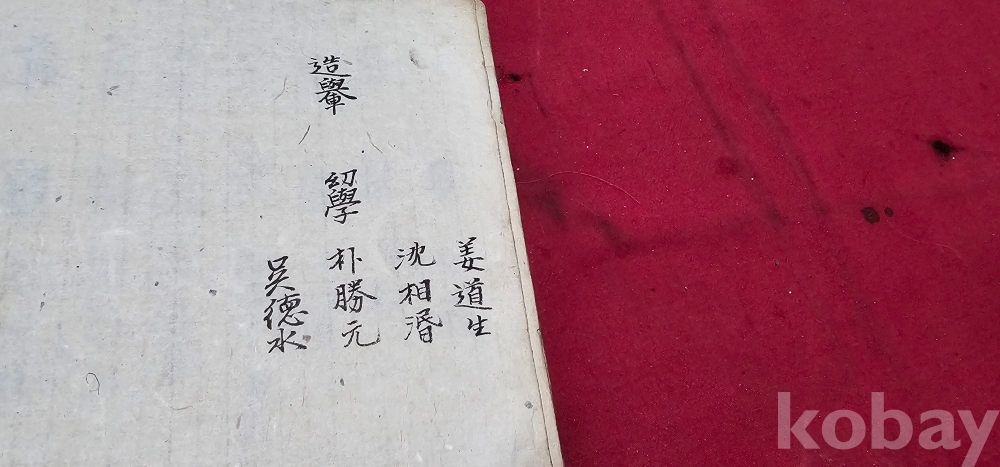 姜道生
沈相湣
幼學 朴勝元
造轝 吳德水
kobay